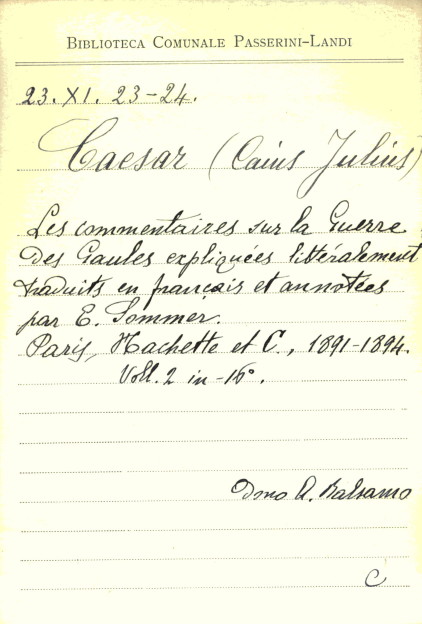 BIBLIOTECA COMUNALE PASSERINI-LANDI
23. XI. 23-24.
Caesar (Caius Julius)
Les commentaires sur la Guerre
des Gaules expliquées littéralement
traduits en français et annotées
par E. Sommer.
Paris, Hachette et C., 1891-1894.
Voll. 2 in-16°.
Dono A. Balsamo
C